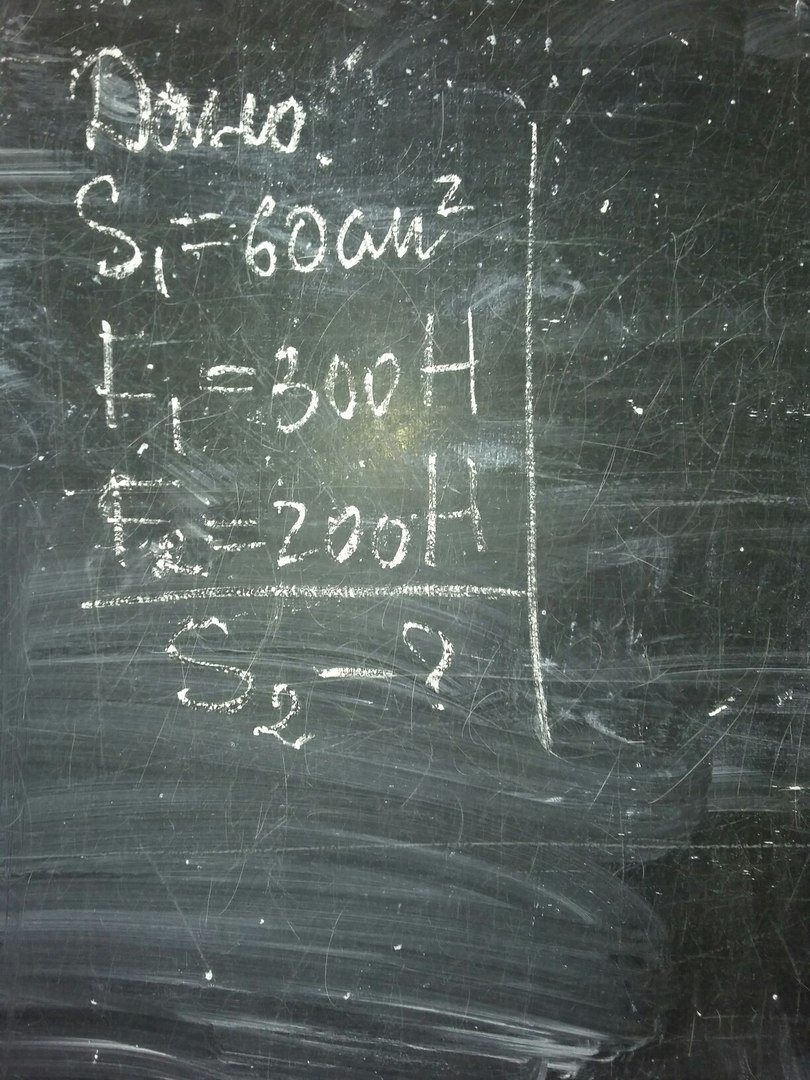 Дано
S₁=60см²
F₁=300Н
F₂=200Н
S₂-?